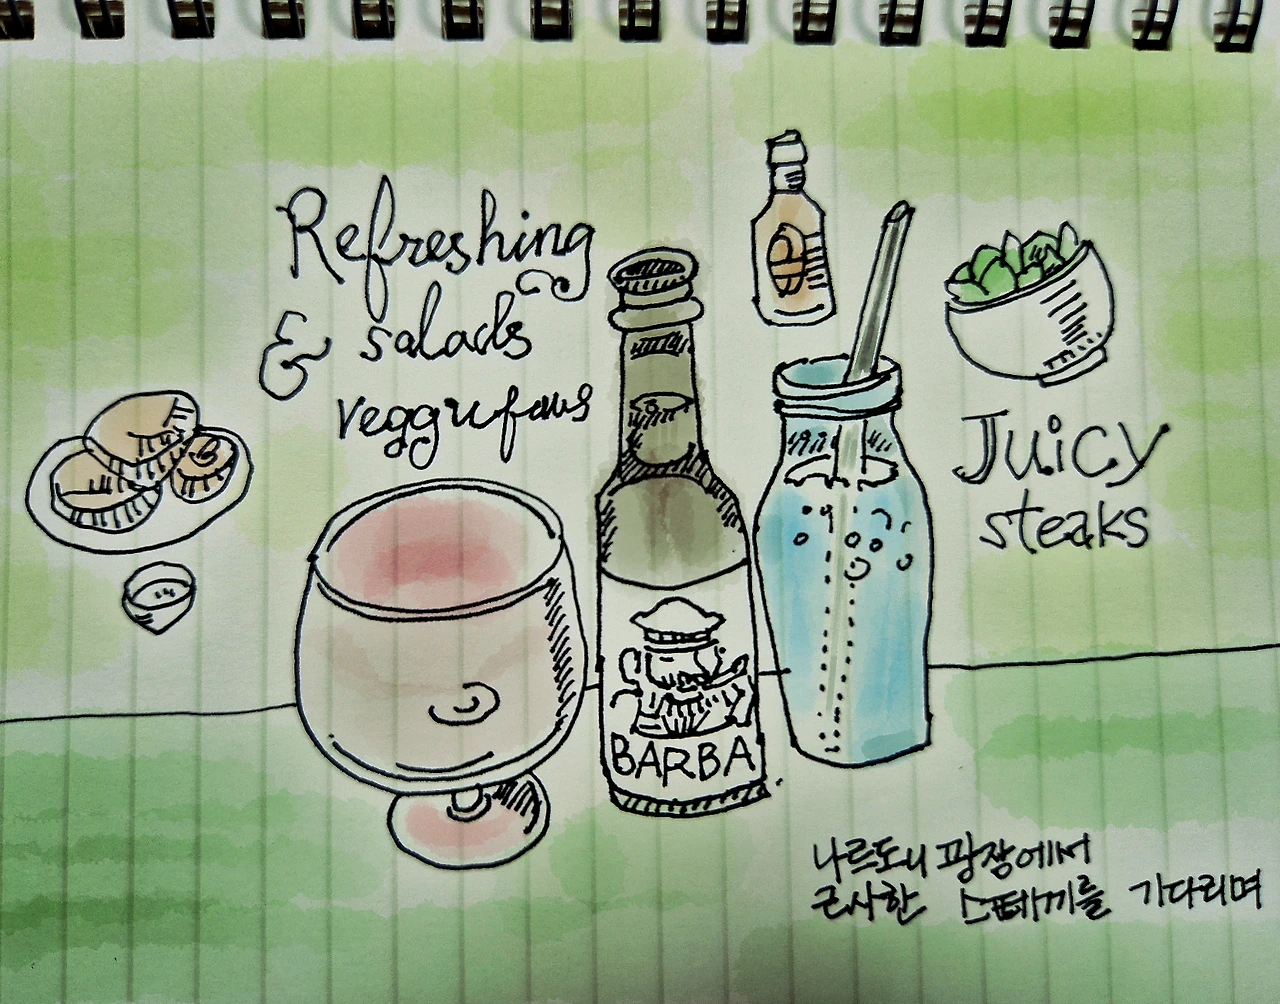 Refreshing
& salads
Juicy
steaks
BARBA
나르도니 광장에서
근사한 스테끼를 기다리며